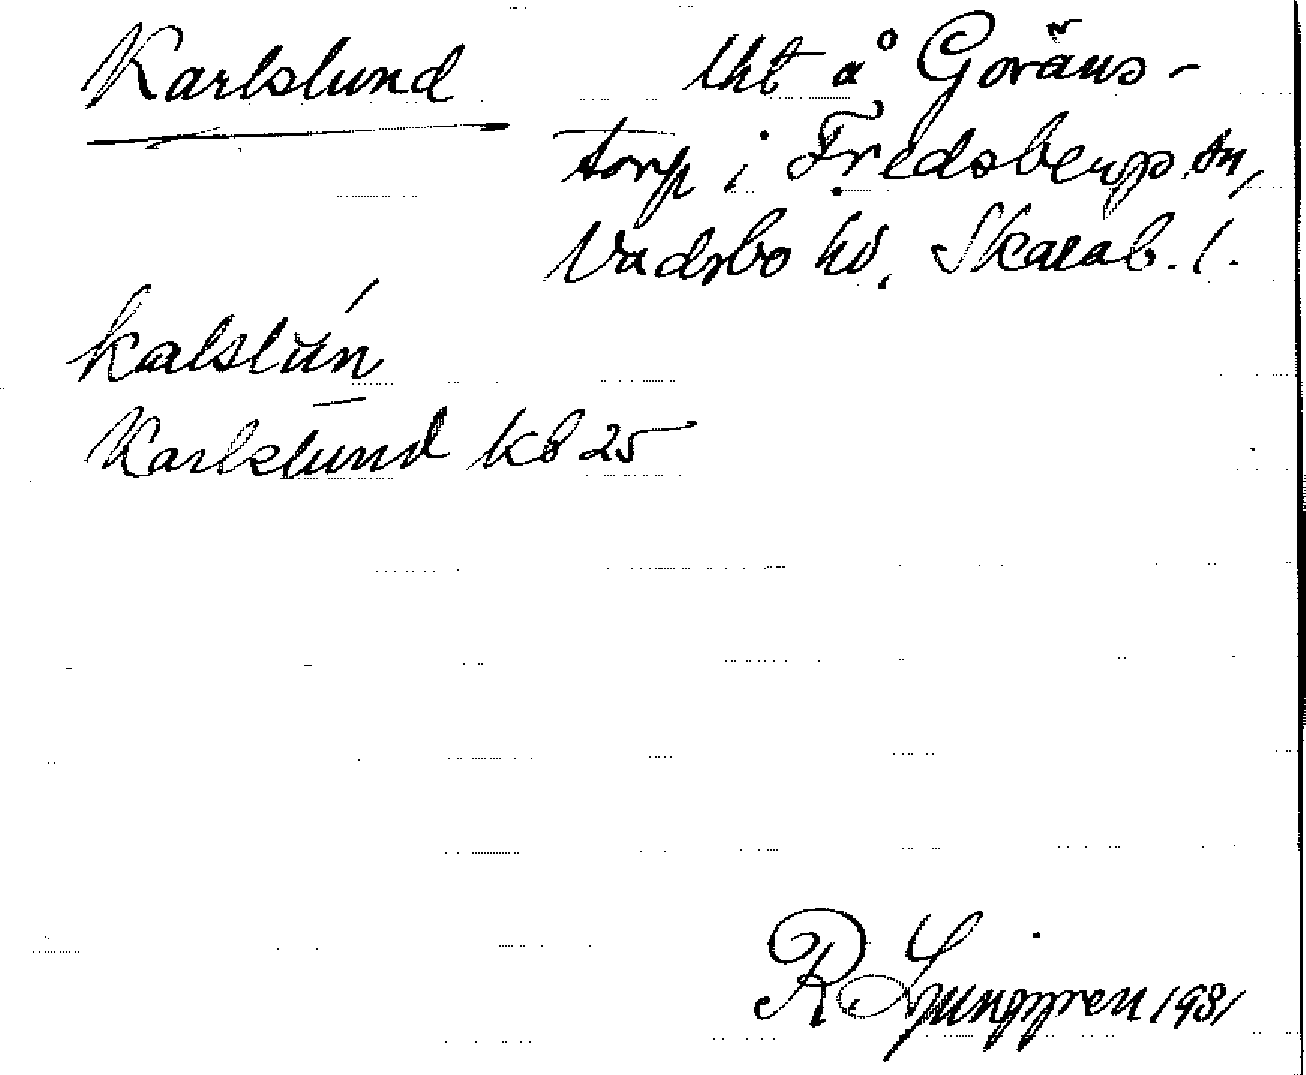 Karlslund
lht å Görans-
torp i Fredsbergs sn,
Vadsbo hd, Skarab. l.
kalslún
Karlslund kb 25
R. Ljunggren 1931